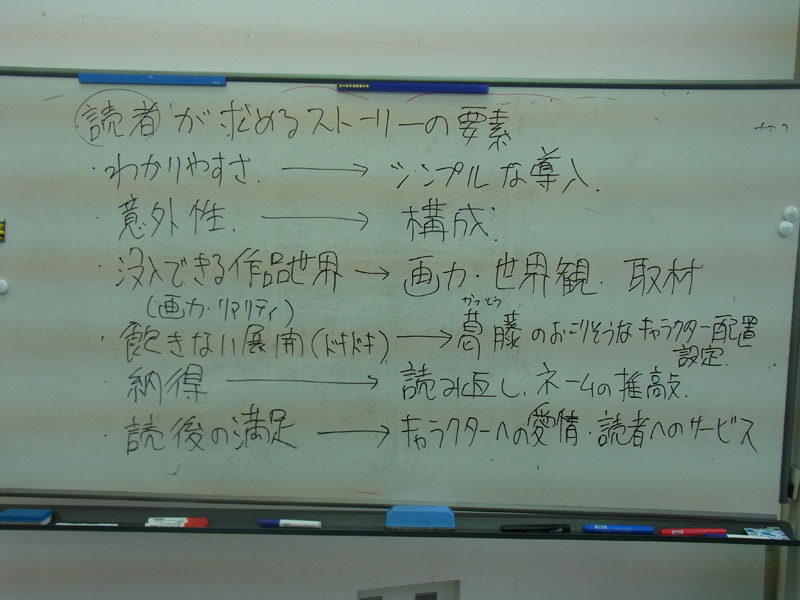 読者が求めるストーリーの要素
・わかりやすさ. → シンプルな導入.
・意外性. → 構成.
・没入できる作品世界 → 画力・世界観. 取材
(画力・リアリティ)
かっとう
・飽きない展開(ドキドキ) → 葛藤のおこりそうなキャラクター配置
設定.
・納得 → 読み返し、ネームの推敲.
・読後の満足 → キャラクターへの愛情・読者へのサービス